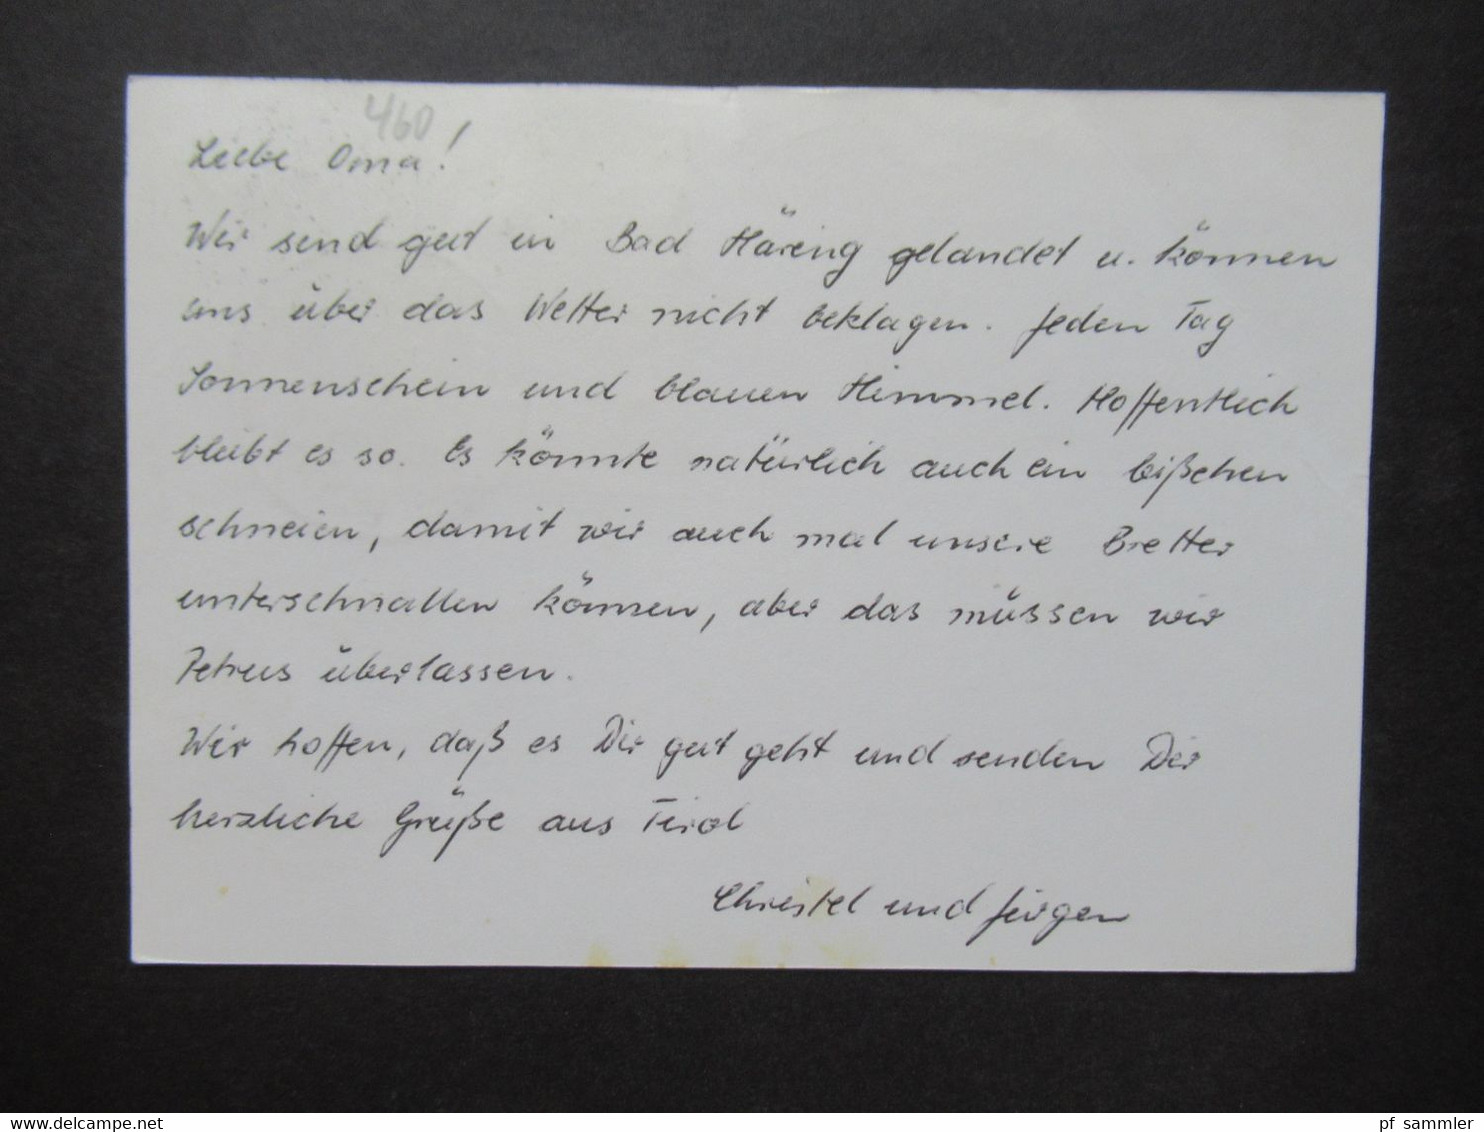 460
Liebe Oma!
Wir sind gut in Bad Häring gelandet u. können
uns über das Wetter nicht beklagen. Jeden Tag
Sonnenschein und blauen Himmel. Hoffentlich
bleibt es so. Es könnte natürlich auch ein bißchen
schneien, damit wir auch mal unsere Bretter
unterschnallen können, aber das müssen wir
Petrus überlassen.
Wir hoffen, daß es Dir gut geht und senden Dir
herzliche Grüße aus Tirol
Christel und Jürgen
www.delcampe.net
pf_sammler